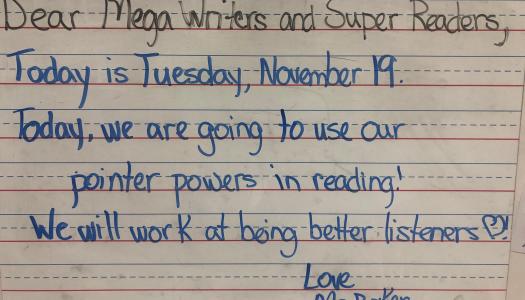 Dear Mega Writers and Super Readers,
Today is Tuesday, November 19.
Today, we are going to use our
pointer powers in reading!
We will work at being better listeners!
Love